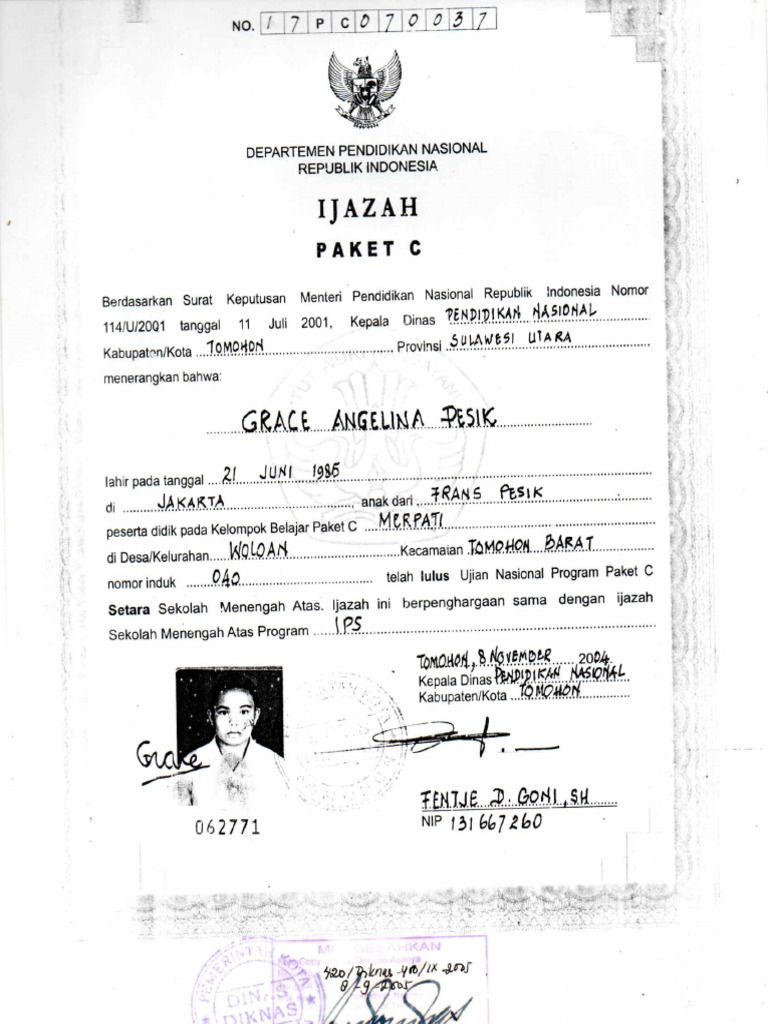 NO. 17PC070037
DEPARTEMEN PENDIDIKAN NASIONAL
REPUBLIK INDONESIA
IJAZAH
PAKET C
Berdasarkan Surat Keputusan Menteri Pendidikan Nasional Republik Indonesia Nomor
114/U/2001 tanggal 11 Juli 2001, Kepala Dinas PENDIDIKAN NASIONAL
Kabupaten/Kota TOMOHON Provinsi SULAWESI UTARA
menerangkan bahwa:
GRACE ANGELINA PESIK
lahir pada tanggal 21 JUNI 1985
di JAKARTA, anak dari FRANS PESIK
peserta didik pada Kelompok Belajar Paket C MERPATI
di Desa/Kelurahan WOLOAN Kecamaian TOMOHON BARAT
nomor induk 040 telah lulus Ujian Nasional Program Paket C
Setara Sekolah Menengah Atas. Ijazah ini berpenghargaan sama dengan ijazah
Sekolah Menengah Atas Program IPS
TOMOHON, 8 NOVEMBER 2004
Kepala Dinas PENDIDIKAN NASIONAL
Kabupaten/Kota TOMOHON
Grace
FENTJE D. GONI, SH
NIP 131667260
062771
PEMERINTAH KOTA
DINAS
DIKNAS
420/Diknas-400/IX-2005
8-9-2005